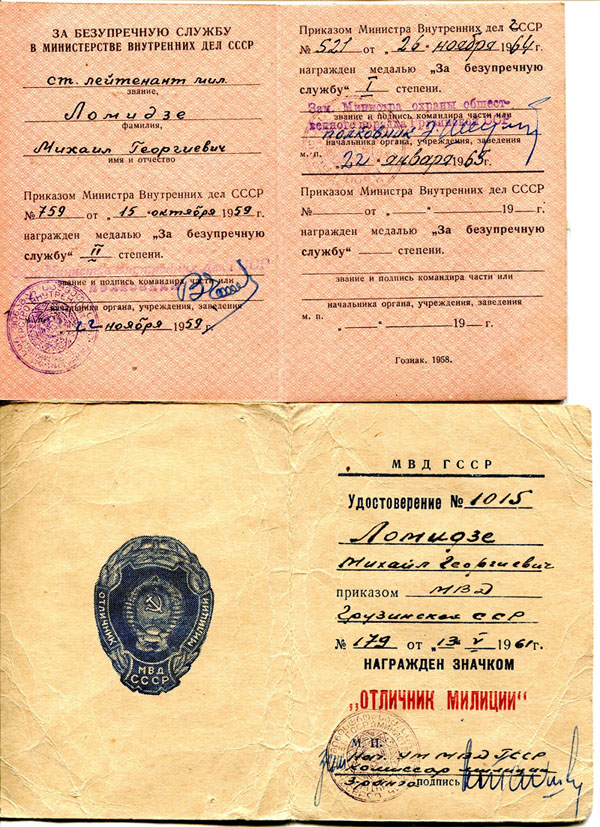 ЗА БЕЗУПРЕЧНУЮ СЛУЖБУ
В МИНИСТЕРСТВЕ ВНУТРЕННИХ ДЕЛ СССР
ст. лейтенант мил.
звание,
Ломидзе
фамилия,
Михаил Георгиевич
имя и отчество
Приказом Министра Внутренних дел СССР
№ 759 от „15" октября 1959 г.
награжден медалью „За безупречную
службу“ II степени.
звание и подпись командира части или
начальника органа, учреждения, заведения
„22" ноября 1959 г.
Приказом Министра Внутренних дел СССР
№ 521 от „26" ноября 1964 г.
награжден медалью „За безупречную
службу“ I степени.
Зам. Министра охраны общест-
венного порядка Грузинской ССР
звание и подпись командира части или
полковник
начальника органа, учреждения, заведения
м. п. „22" января 1965 г.
Приказом Министра Внутренних дел СССР
№ — от „—" — 19 — г.
награжден медалью „За безупречную
службу“ — степени.
звание и подпись командира части или
начальника органа, учреждения, заведения
м. п. „—" — 19 — г.
Гознак. 1958.
ОТЛИЧНИК МИЛИЦИИ
МВД
СССР
МВД ГССР
Удостоверение № 1015
Ломидзе
Михаил Георгиевич
приказом МВД
Грузинской ССР
№ 179 от „13" V 1961 г.
НАГРАЖДЕН ЗНАЧКОМ
„ОТЛИЧНИК МИЛИЦИИ“
М. П.
Нач. УМ МВД ГССР
комиссар милиции
3 ранга подпись